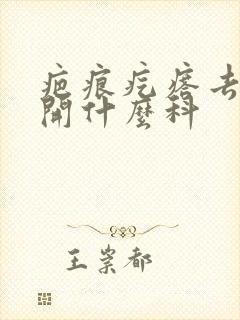 疤痕疙瘩去
開什麼科
王崇都